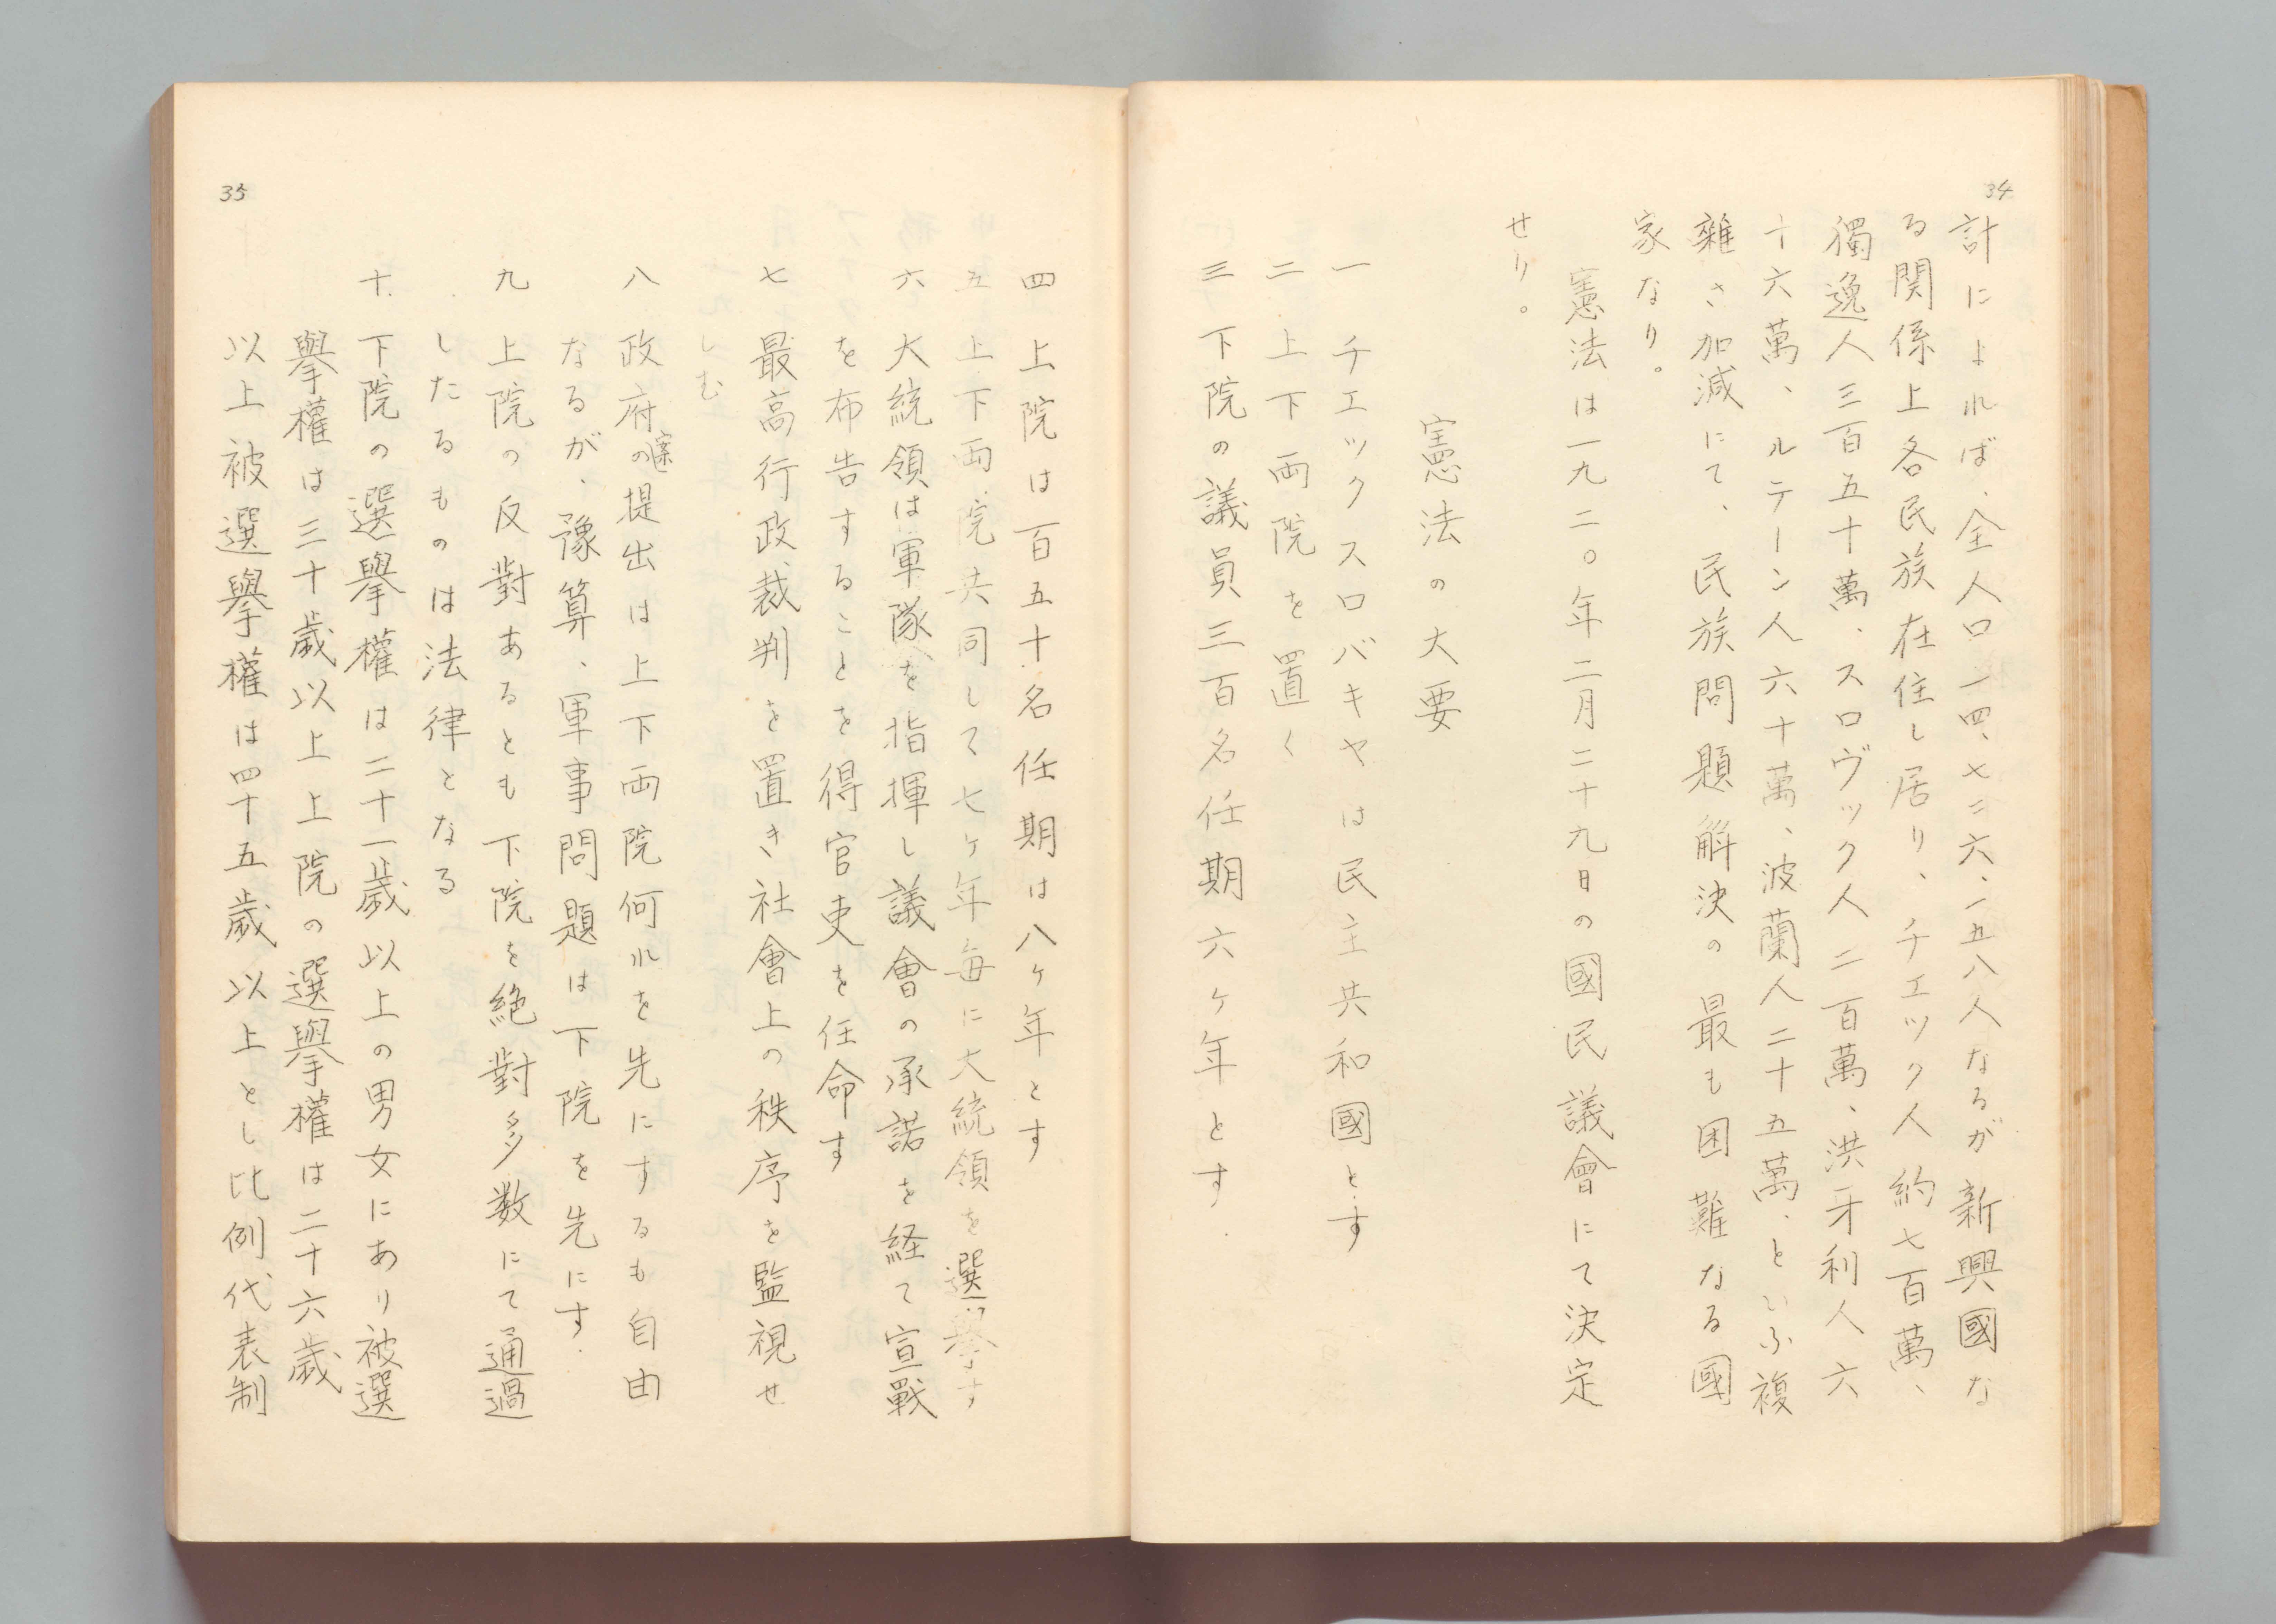 34
計によれば、全人口一四、七二六、一五八人なるが新興國な
る関係上各民族在住し居り、チエック人約七百萬、
獨逸人三百五十萬、スロヴック人二百萬、洪牙利人六
十六萬、ルテーン人六十萬、波蘭人二十五萬、といふ複
雜さ加減にて、民族問題解決の最も困難なる國
家なり。
憲法は一九二〇年二月二十九日の國民議會にて決定
せり。
憲法の大要
一 チエックスロバキヤは民主共和國とす
二 上下両院を置く
三 下院の議員三百名任期六ヶ年とす
四 上院は百五十名任期は八ヶ年とす
五 上下両院共同して七ヶ年毎に大統領を選擧す
六 大統領は軍隊を指揮し議會の承諾を経て宣戰
を布告することを得官吏を任命す
七 最高行政裁判を置き社會上の秩序を監視せ
しむ
八 政府の案提出は上下両院何れを先にするも自由
なるが、豫算、軍事問題は下院を先にす.
九 上院の反對あるとも下院を絶對多数にて通過
したるものは法律となる
十. 下院の選擧權は二十一歳以上の男女にあり被選
擧權は三十歳以上上院の選擧權は二十六歳
以上被選擧權は四十五歳以上とし比例代表制
35